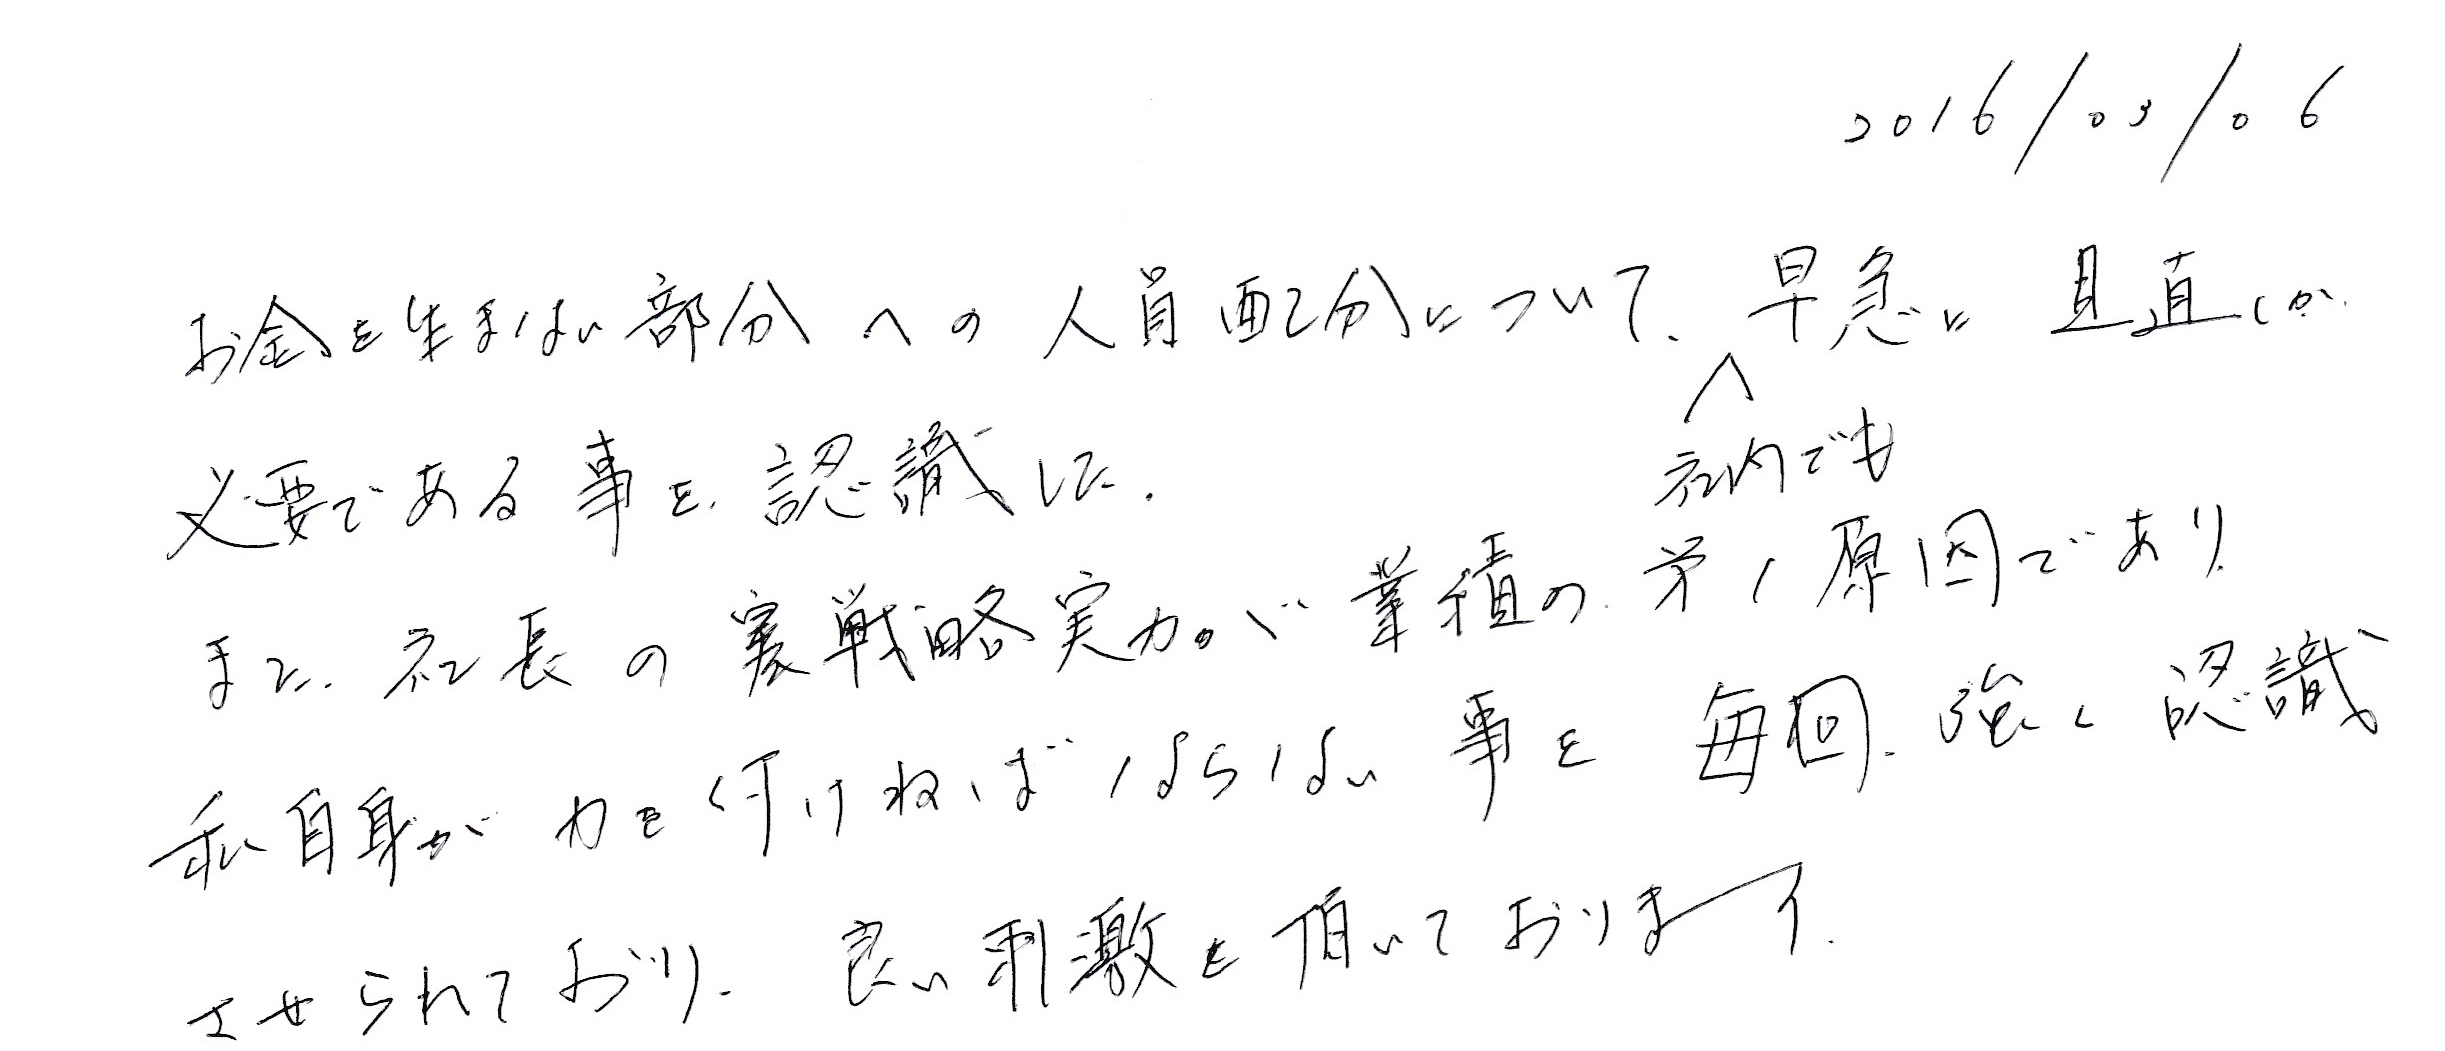 2016/03/06
お金を生まない部分への人員配分について、早急に見直しが
社内でも
必要である事を、認識した.
また、社長の戦略実力が業績の第1原因であり、
私自身が力を付けねばならない事を毎回、強く認識
させられており、良い刺激を頂いております.